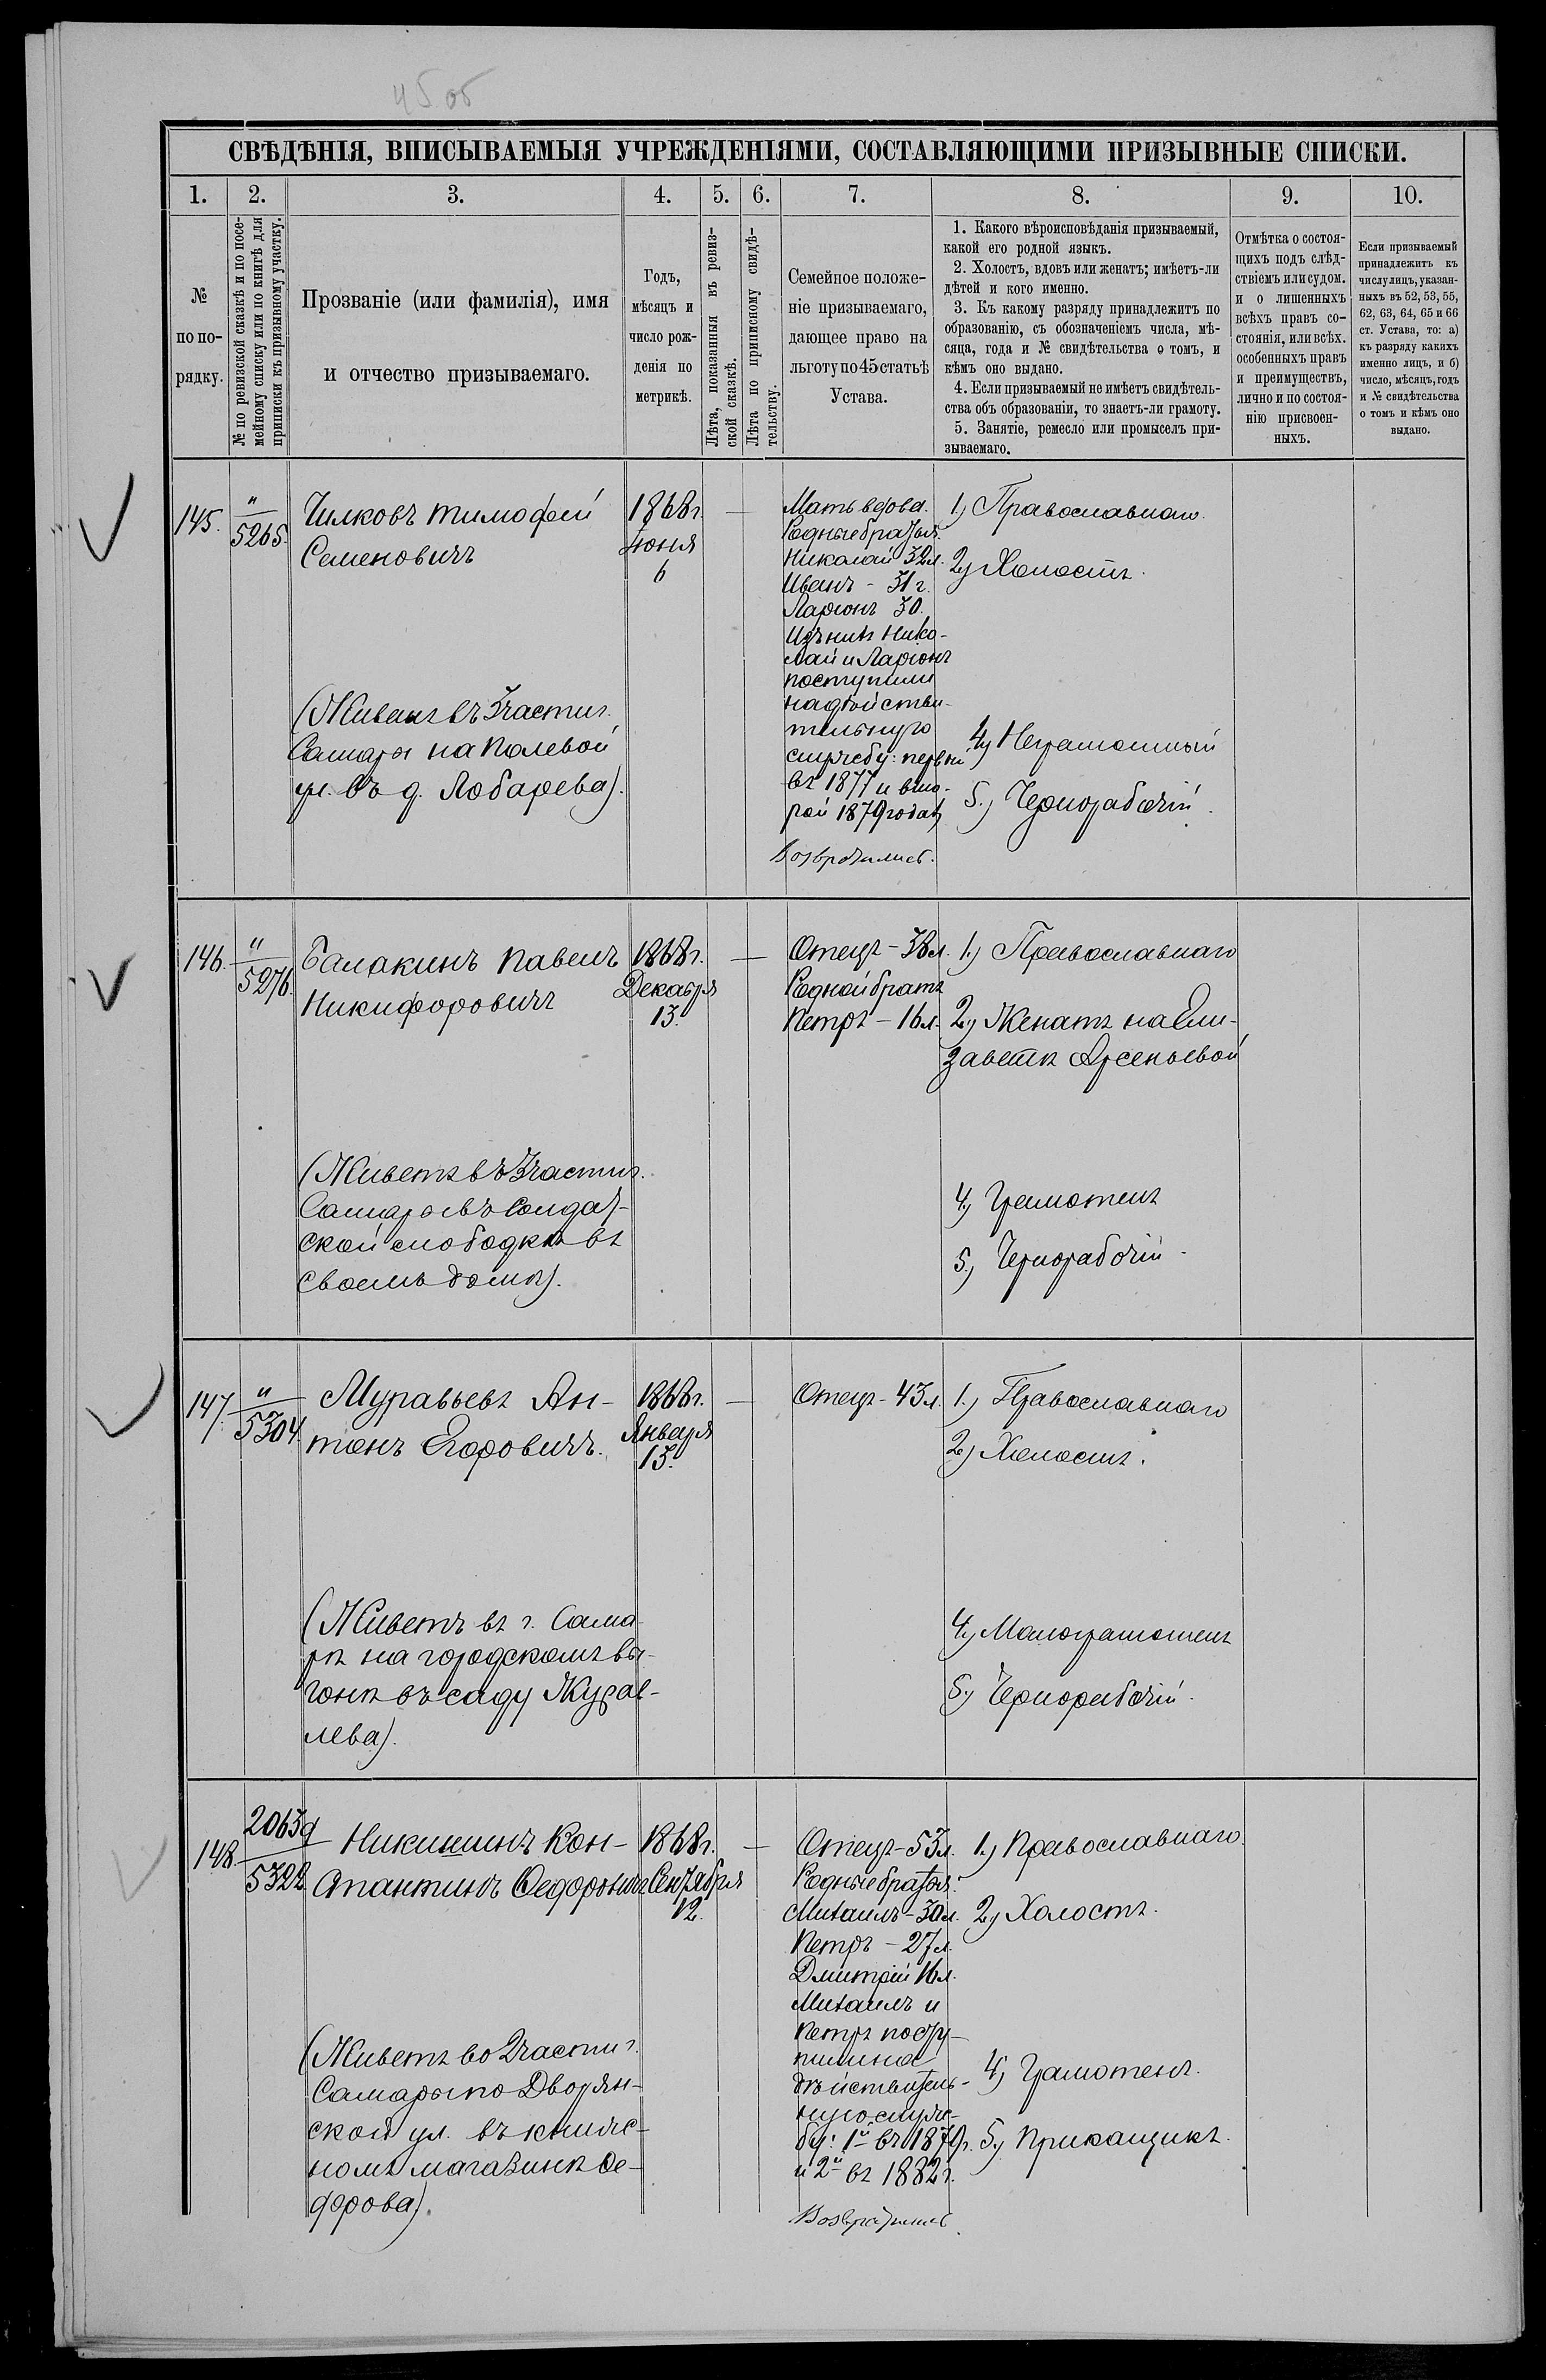 45 об
СВѢДѢНІЯ, ВПИСЫВАЕМЫЯ УЧРЕЖДЕНІЯМИ, СОСТАВЛЯЮЩИМИ ПРИЗЫВНЫЕ СПИСКИ.
1. 2. 3. 4. 5. 6. 7. 8. 9. 10.
№
по по-
рядку.
№ по ревизской сказкѣ и по посе-
мейному списку или по книгѣ для
приписки къ призывному участку.
Прозваніе (или фамилія), имя
и отчество призываемаго.
Годъ,
мѣсяцъ и
число рож-
денія по
метрикѣ.
Лѣта, показанныя въ ревиз-
ской сказкѣ.
Лѣта по приписному свидѣ-
тельству.
Семейное положе-
ніе призываемаго,
дающее право на
льготу по 45 статьѣ
Устава.
1. Какого вѣроисповѣданія призываемый,
какой его родной языкъ.
2. Холостъ, вдовъ или женатъ; имѣетъ-ли
дѣтей и кого именно.
3. Къ какому разряду принадлежитъ по
образованію, съ обозначеніемъ числа, мѣ-
сяца, года и № свидѣтельства о томъ, и
кѣмъ оно выдано.
4. Если призываемый не имѣетъ свидѣтель-
ства объ образованіи, то знаетъ-ли грамоту.
5. Занятіе, ремесло или промыселъ при-
зываемаго.
Отмѣтка о состоя-
щихъ подъ слѣд-
ствіемъ или судом.
и о лишенныхъ
всѣхъ правъ со-
стоянія, или всѣх.
особенныхъ правъ
и преимуществъ,
лично и по состоя-
нію присвоен-
ныхъ.
Если призываемый
принадлежитъ къ
числу лицъ, указан-
ныхъ въ 52, 53, 55,
62, 63, 64, 65 и 66
ст. Устава, то: а)
къ разряду какихъ
именно лицъ, и б)
число, мѣсяцъ, годъ
и № свидѣтельства
о томъ и кѣмъ оно
выдано.
145.
"
5265.
Чилковъ Тимофей
Семеновичъ
(Живетъ въ 3 части г.
Самары на Полевой
ул. въ д. Лобарева).
1868 г.
Іюня
6
—
Мать вдова.
Родные братья
Николай 32 л.
Иванъ - 31 г.
Ларіонъ 30.
Изъ нихъ Нико-
лай и Ларіонъ
поступили
на дѣйстви-
тельную
службу: первый
въ 1877 и вто-
рой 1879 годах
Возвратились.
1.) Православнаго
2.) Холостъ.
4.) Неграмотный
5.) Чернорабочій.
146.
"
5276.
Балакинъ Павелъ
Никифоровичъ
(Живетъ въ 3 части г.
Самары въ Солдат-
ской слободкѣ въ
своемъ домѣ).
1868 г.
Декабря
13.
—
Отецъ - 38 л.
Родной братъ
Петръ - 16 л.
1.) Православнаго
2.) Женатъ на Ели-
заветѣ Арсеньевой
4.) Грамотенъ
5.) Чернорабочій.
147.
"
5304.
Муравьевъ Ан-
тонъ Егоровичъ.
(Живетъ въ г. Сама-
рѣ на городскомъ вы-
гонѣ въ саду Журав-
лева).
1868 г.
Января
13.
—
Отецъ - 43 л.
1.) Православнаго
2.) Холостъ.
4.) Малограмотенъ
5.) Чернорабочій.
148.
2063
5322
Никишинъ Кон-
стантинъ Федоровичъ
(Живетъ во 2 части г.
Самары по Дворян-
ской ул. въ книж-
номъ магазинѣ Фе-
дорова).
1868 г.
Сентября
12.
—
Отецъ - 53 л.
Родные братья:
Михаилъ - 30 л.
Петръ - 27 л.
Дмитрій 16 л.
Михаилъ и
Петръ посту-
пили на
дѣйствитель-
ную служ-
бу: 1й въ 1879 г.
и 2й въ 1882 г.
Возвратились
1.) Православнаго.
2.) Холостъ.
4.) Грамотенъ.
5.) Прикащикъ.